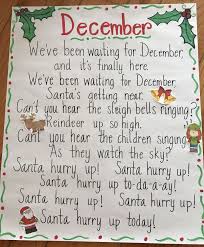 December
We've been waiting for December,
and it's finally here.
We've been waiting for December,
Santa's getting near.
Can't you hear the sleigh bells ringing?
Reindeer up so high.
Can't you hear the children singing
As they watch the sky?
Santa hurry up! Santa hurry up!
Santa hurry up to-da-a-ay!
Santa hurry up! Santa hurry up!
Santa hurry up today!